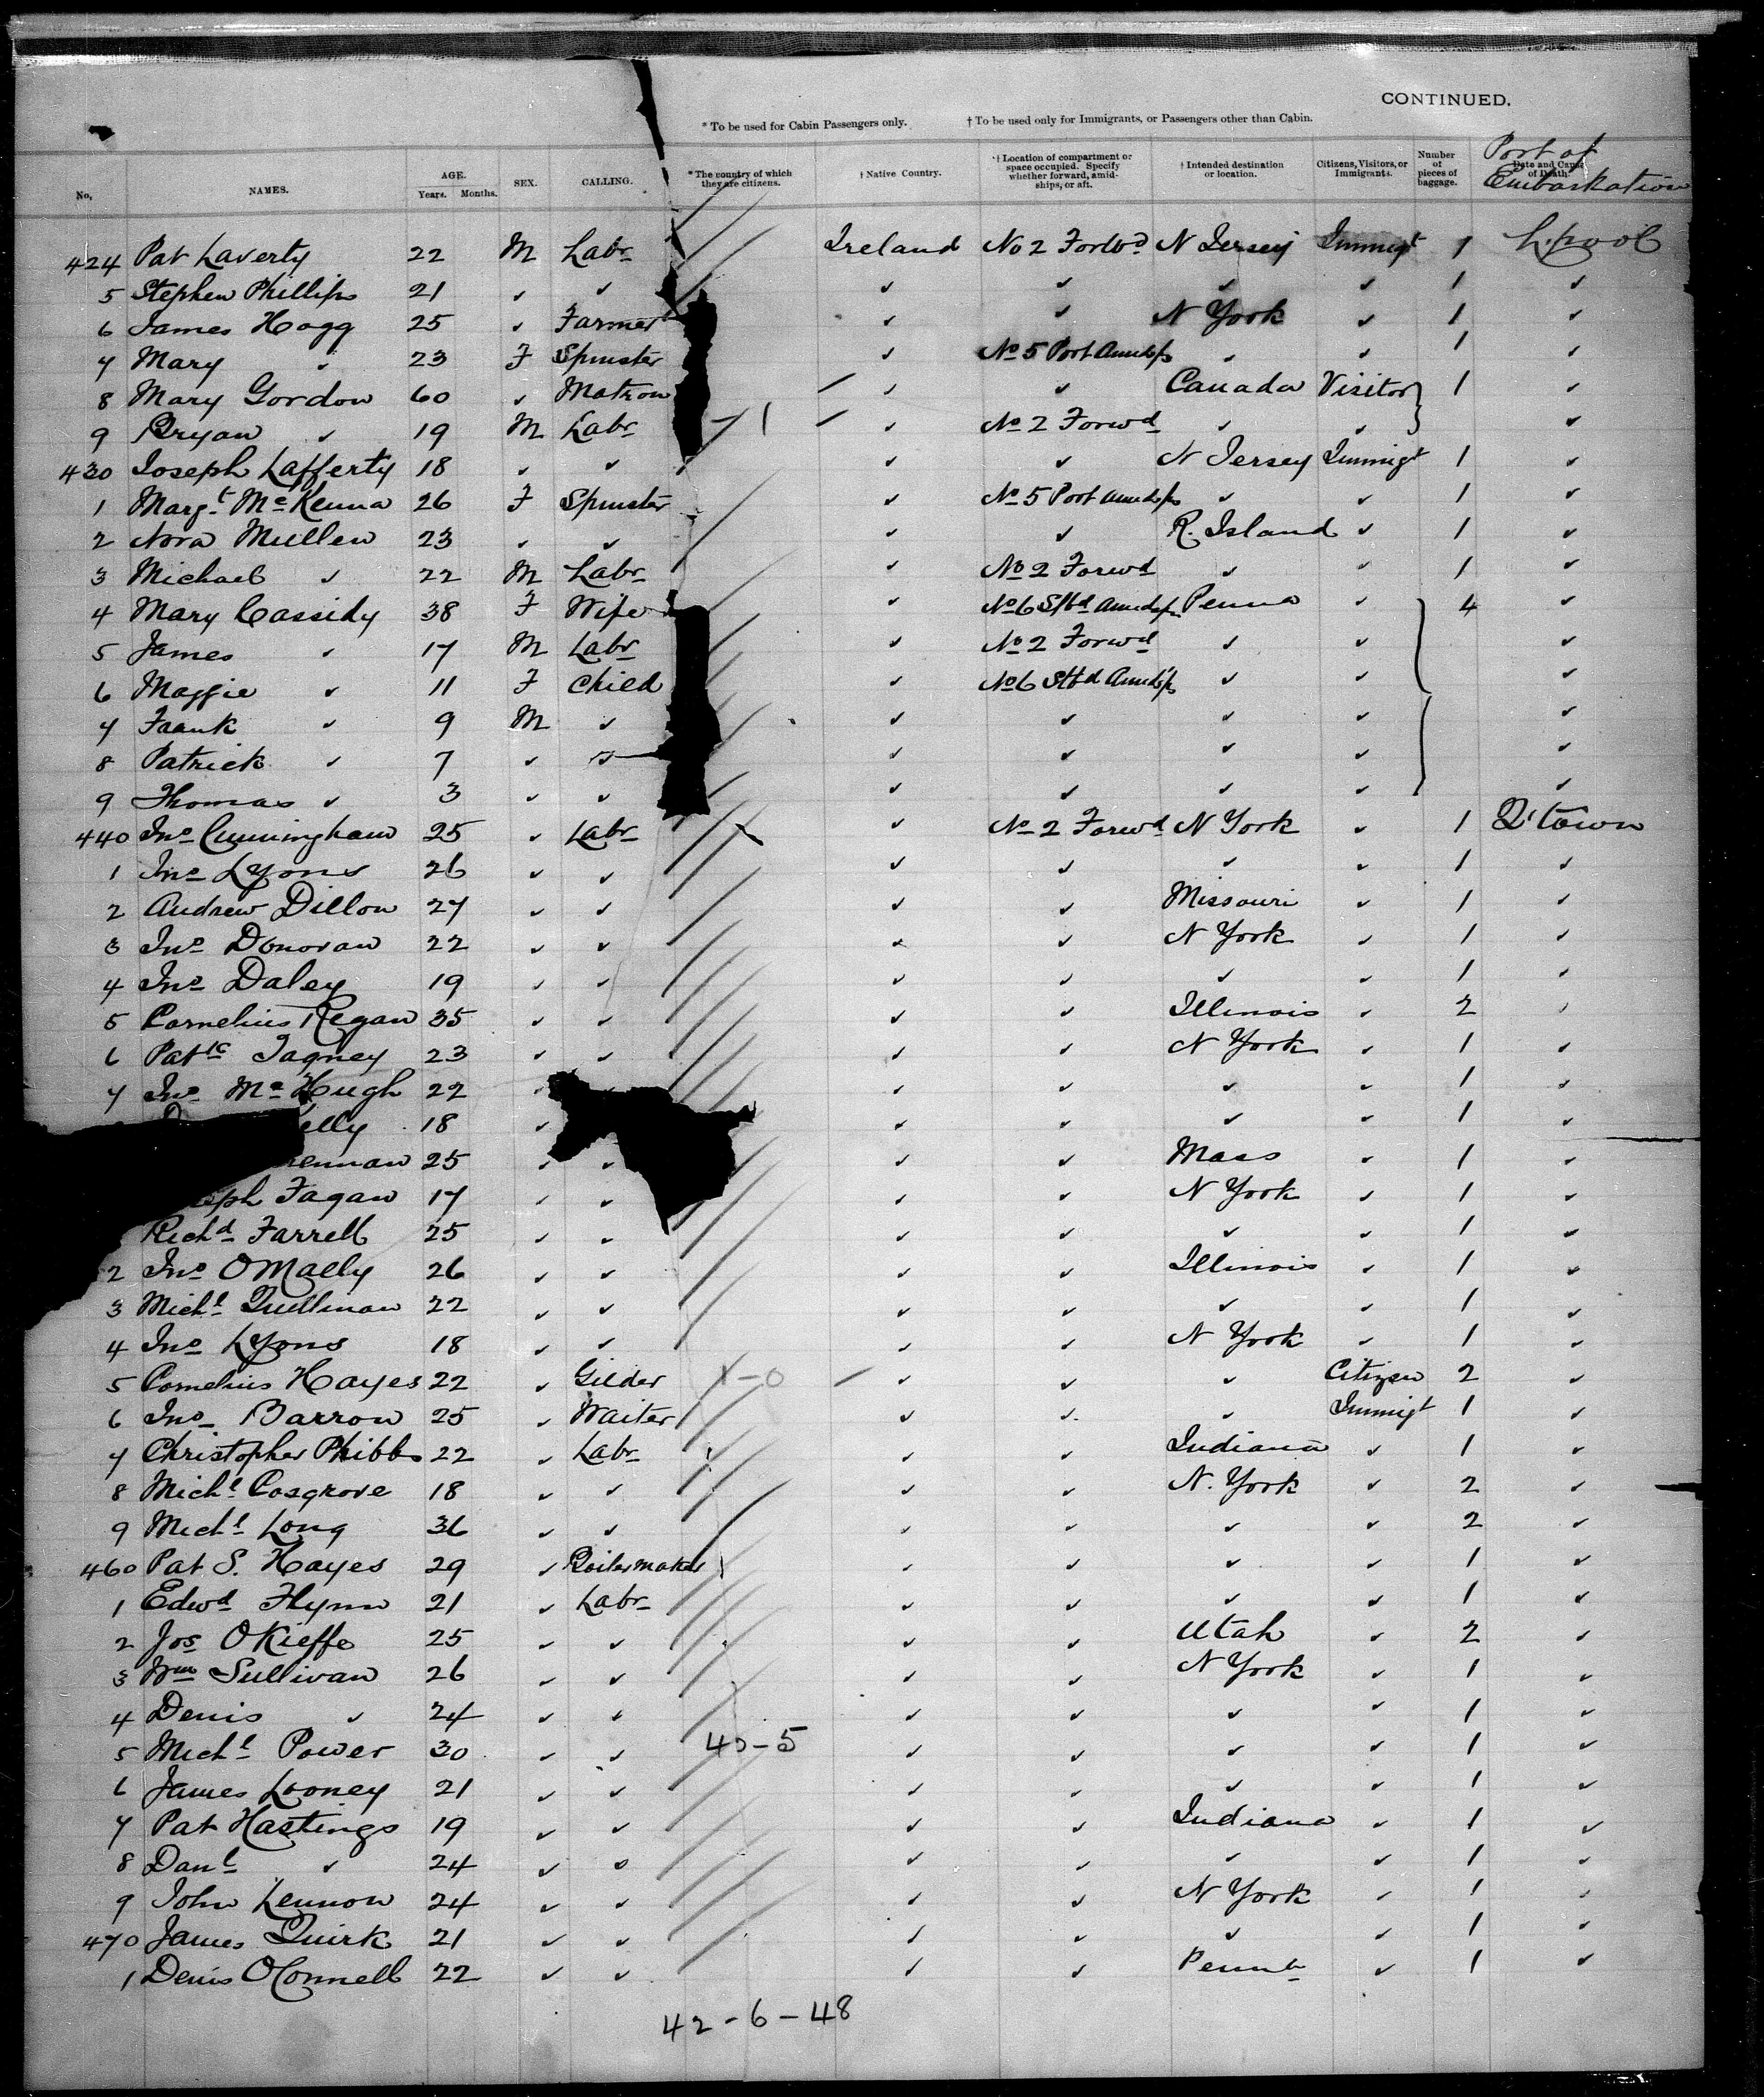 CONTINUED.
* To be used for Cabin Passengers only. † To be used only for Immigrants, or Passengers other than Cabin.
No. NAMES. AGE. Years. Months. SEX. CALLING. * The country of which they are citizens. † Native Country. *† Location of compartment or space occupied. Specify whether forward, amidships, or aft. † Intended destination or location. Citizens, Visitors, or Immigrants. Number of pieces of baggage. Date and Cause of Death. Port of Embarkation
424 Pat Laverty 22 M Labr Ireland No 2 Forwd N Jersey Immigt 1 L'pool
5 Stephen Phillips 21 ✓ ✓ ✓ ✓ ✓ ✓ 1 ✓
6 James Hogg 25 ✓ Farmer ✓ ✓ N York ✓ 1 ✓
7 Mary ✓ 23 F Spinster ✓ No 5 Port Amidsps ✓ ✓ 1 ✓
8 Mary Gordon 60 ✓ Matron ✓ ✓ Canada Visitor 1 ✓
9 Bryan ✓ 19 M Labr - 1 ✓ No 2 Forwd ✓ ✓ ✓
430 Joseph Lafferty 18 ✓ ✓ ✓ ✓ N Jersey Immigt 1 ✓
1 Margt McKenna 26 F Spinster ✓ No 5 Port Amidsps ✓ ✓ 1 ✓
2 Nora Mullen 23 ✓ ✓ ✓ ✓ R. Island ✓ 1 ✓
3 Michael ✓ 22 M Labr ✓ No 2 Forwd ✓ ✓ 1 ✓
4 Mary Cassidy 38 F Wife ✓ No 6 Stbd Amidsps Penna ✓ 4 ✓
5 James ✓ 17 M Labr ✓ No 2 Forwd ✓ ✓ ✓
6 Maggie ✓ 11 F Child ✓ No 6 Stbd Amidsps ✓ ✓ ✓
7 Frank ✓ 9 M ✓ ✓ ✓ ✓ ✓ ✓
8 Patrick ✓ 7 ✓ ✓ ✓ ✓ ✓ ✓ ✓
9 Thomas ✓ 3 ✓ ✓ ✓ ✓ ✓ ✓ ✓
440 Jno Cunningham 25 ✓ Labr ✓ No 2 Forwd N York ✓ 1 Q'town
1 Jno Lyons 26 ✓ ✓ ✓ ✓ ✓ ✓ 1 ✓
2 Andrew Dillon 27 ✓ ✓ ✓ ✓ Missouri ✓ 1 ✓
3 Jno Donovan 22 ✓ ✓ ✓ ✓ N York ✓ 1 ✓
4 Jno Daley 19 ✓ ✓ ✓ ✓ ✓ ✓ 1 ✓
5 Cornelius Regan 35 ✓ ✓ ✓ ✓ Illinois ✓ 2 ✓
6 Patk Tagney 23 ✓ ✓ ✓ ✓ N York ✓ 1 ✓
7 Jno McHugh 22 ✓ ✓ ✓ ✓ ✓ 1 ✓
elly 18 ✓ ✓ ✓ ✓ ✓ 1 ✓
rennan 25 ✓ ✓ ✓ ✓ Mass ✓ 1 ✓
eph Fagan 17 ✓ ✓ ✓ ✓ N York ✓ 1 ✓
Richd Farrell 25 ✓ ✓ ✓ ✓ ✓ ✓ 1 ✓
2 Jno O Mally 26 ✓ ✓ ✓ ✓ Illinois ✓ 1 ✓
3 Michl Quillinan 22 ✓ ✓ ✓ ✓ ✓ ✓ 1 ✓
4 Jno Lyons 18 ✓ ✓ ✓ ✓ N York ✓ 1 ✓
5 Cornelius Hayes 22 ✓ Gilder 1-0 ✓ ✓ ✓ Citizen 2 ✓
6 Jno Barron 25 ✓ Waiter ✓ ✓ ✓ Immigt 1 ✓
7 Christopher Phibbs 22 ✓ Labr ✓ ✓ Indiana ✓ 1 ✓
8 Michl Cosgrove 18 ✓ ✓ ✓ ✓ N. York ✓ 2 ✓
9 Michl Long 36 ✓ ✓ ✓ ✓ ✓ ✓ 2 ✓
460 Pat S. Hayes 29 ✓ Boilermaker ✓ ✓ ✓ ✓ 1 ✓
1 Edwd Flynn 21 ✓ Labr ✓ ✓ ✓ ✓ 1 ✓
2 Jos O Kieffe 25 ✓ ✓ ✓ ✓ Utah ✓ 2 ✓
3 Wm Sullivan 26 ✓ ✓ ✓ ✓ N York ✓ 1 ✓
4 Denis ✓ 24 ✓ ✓ ✓ ✓ ✓ ✓ 1 ✓
5 Michl Power 30 ✓ ✓ 40-5 ✓ ✓ ✓ ✓ 1 ✓
6 James Looney 21 ✓ ✓ ✓ ✓ ✓ ✓ 1 ✓
7 Pat Hastings 19 ✓ ✓ ✓ ✓ Indiana ✓ 1 ✓
8 Danl ✓ 24 ✓ ✓ ✓ ✓ ✓ ✓ 1 ✓
9 John Lennon 24 ✓ ✓ ✓ ✓ N York ✓ 1 ✓
470 James Quirk 21 ✓ ✓ ✓ ✓ ✓ ✓ 1 ✓
1 Denis O Connell 22 ✓ ✓ ✓ ✓ Penna ✓ 1 ✓
42-6-48